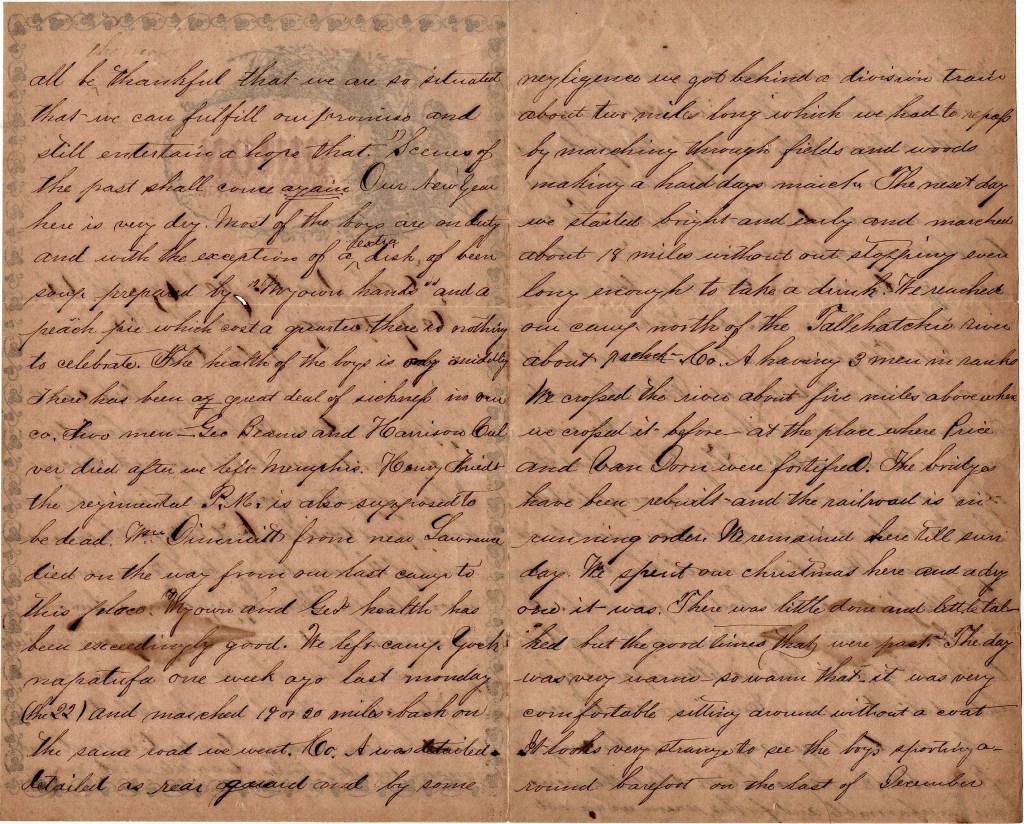 all be thankful that we are so situated
that we can fulfill our promise and
still entertain a hope that "Scenes of
the past shall come again" Our New Year
here is very dry. Most of the boys are on duty
and with the exception of a extra dish of been
soup prepared by "My own hands" and a
peach pie which cost a quarter there is nothing
to celebrate. The health of the boys is only midling
There has been a great deal of sickness in our
co. Two men Geo Beams and Harrison Cul
ver died after we left Memphis. Henry
the regimental P.M. is also supposed to
be dead. Wm from near Lawrence
died on the way from our last camp to
this place. My own and Geo' health has
been exceedingly good. We left camp Yock
napatufa one week ago last monday
(the 22) and marched 19 or 20 miles back on
the same road we went. Co. A was detailed
detailed as rear guard and by some
negligence we got behind a division train
about two miles long which we had to repass
by marching through fields and woods
making a hard days march. The next day
we started bright and early and marched
about 18 miles without out stopping even
long enough to take a drink. We reached
our camp north of the Tallehatchie river
about Co. A having 3 men in ranks
We crossed the river about five miles above where
we crossed it before at the place where Price
and Van Dorn were fortified. The bridges
have been rebuilt and the railroad is in
running order. We remained here till sun
day. We spent our christmas here and a dry
one it was. There was little done and little tal
ked but the good times that were past. The day
was very warm so warm that it was very
comfortable sitting around without a coat
It looks very strange to see the boys sporting a-
round barefoot on the last of December